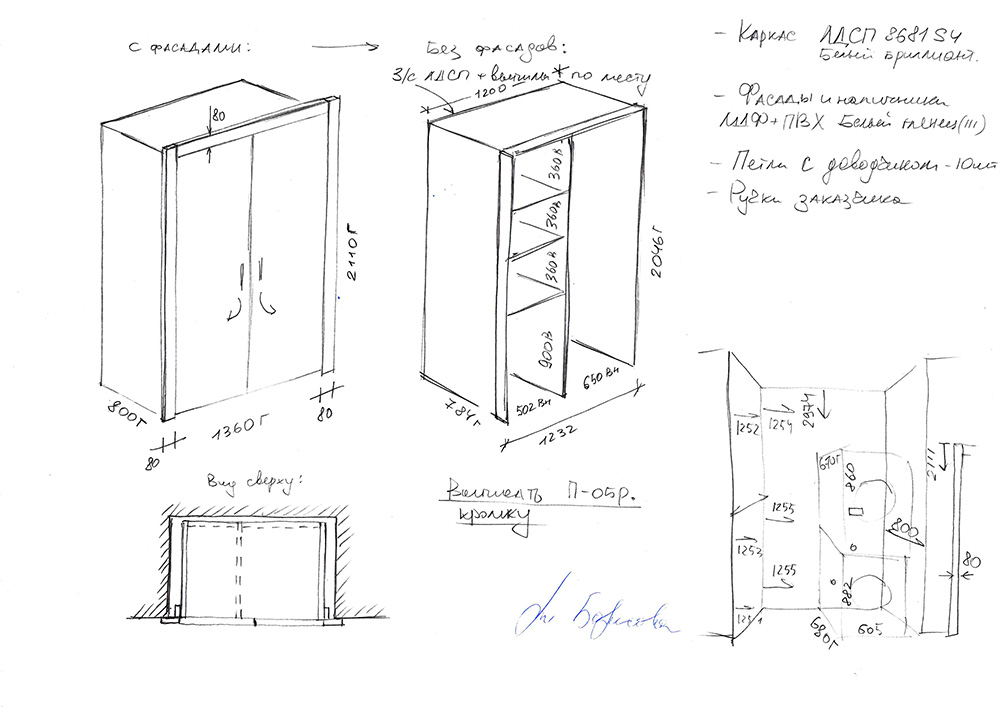 С ФАСАДАМИ:
Без фасадов:
З/с ЛДСП + вытяжка * по месту
1200
80
2110Г
800Г
80
1360Г
80
360В
360В
360В
900В
2046Г
784Г
502 Вн
650 Вн
1232
- Каркас ЛДСП 8681 S4
Белый бриллиант.
- Фасады и наличники
МДФ+ПВХ Белый глянец (III)
- Петли с доводчиком - 10шт
- Ручки заказчика
Вид сверху:
П-05р.
кромку
1252
1254
2974
670Г
860
2111
1255
800
1253
1255
80
882
680Г
605